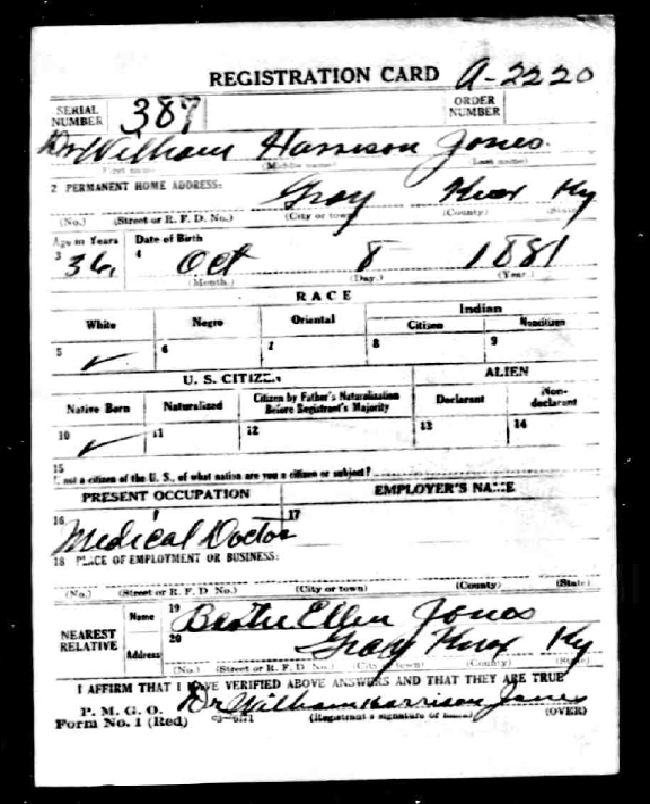 REGISTRATION CARD A-2220
SERIAL NUMBER 387 ORDER NUMBER
Dr William Harrison Jones.
First name (Middle name) (Last name)
2 PERMANENT HOME ADDRESS: Gray Knox Ky
(No.) (Street or R. F. D. No.) (City or town) (County) (State)
Age in Years Date of Birth
3 36 4 Oct 8 1881
(Month.) (Day.) (Year.)
RACE
White Negro Oriental Indian
Citizen Noncitizen
5 ✓ 6 7 8 9
U. S. CITIZEN ALIEN
Native Born Naturalized Citizen by Father's Naturalization Before Registrant's Majority Declarant Non-declarant
10 ✓ 11 12 13 14
15
not a citizen of the U. S., of what nation are you a citizen or subject?
PRESENT OCCUPATION EMPLOYER'S NAME
16 Medical Doctor 17
18 PLACE OF EMPLOYMENT OR BUSINESS:
(No.) (Street or R. F. D. No.) (City or town) (County) (State)
NEAREST RELATIVE Name 19 Ellen Jones
Address 20 Gray Knox Ky
(No.) (Street or R. F. D. No.) (City or town) (County) (State)
I AFFIRM THAT I HAVE VERIFIED ABOVE ANSWERS AND THAT THEY ARE TRUE
P. M. G. O. Dr William Harrison Jones
Form No. 1 (Red) (Registrant's signature or mark) (OVER)